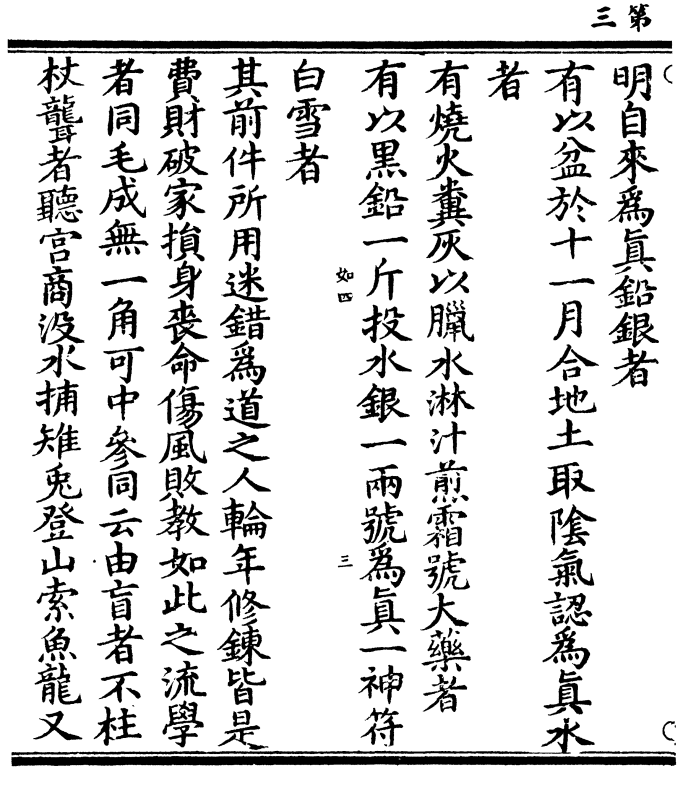 第三
明自來爲眞鉛銀者
有以盆於十一月合地土取陰氣認爲眞水
者
有燒火糞灰以臘水淋汁煎霜號大藥者
有以黑鉛一斤投水銀一兩號爲眞一神符
如四
三
白雪者
其前件所用迷錯爲道之人輪年修鍊皆是
費財破家損身喪命傷風敗教如此之流學
者同毛成無一角可中參同云由盲者不柱
杖聾者聽宫商没水捕雉兎登山索魚龍又